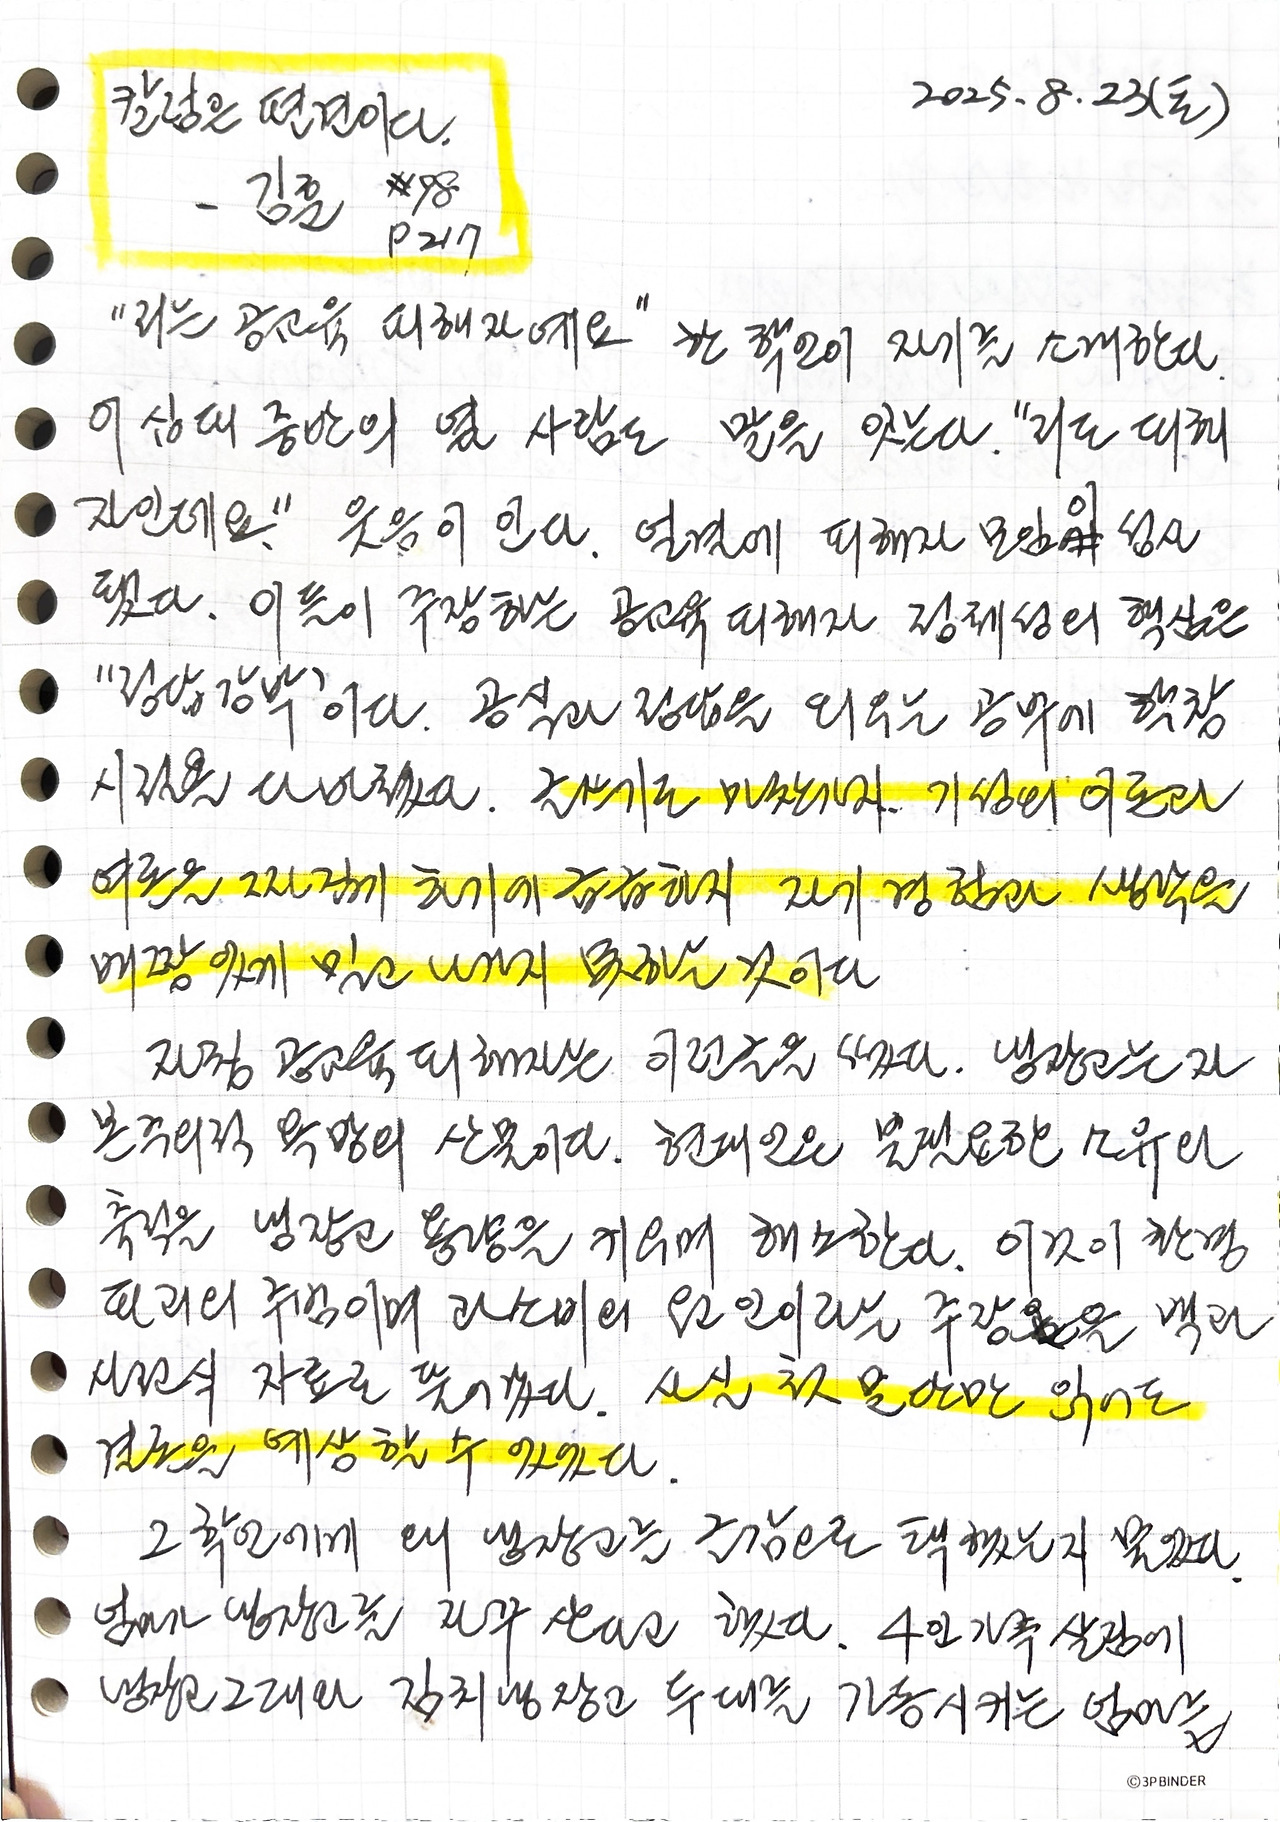 칼럼은 편견이다.
2025. 8. 23(토)
- 김훈 #98
P217
"저는 공교육 피해자예요" 한 학인이 자기를 소개한다.
이십대 중반의 옆 사람도 말을 잇는다. "저도 피해
자인데요." 웃음이 인다. 얼결에 피해자 모임이 성사
됐다. 이들이 주장하는 공교육 피해자 정체성의 핵심은
"정답강박"이다. 공식과 정답을 외우는 공부에 학창
시절을 다 바쳤다. 글쓰기도 마찬가지. 기성의 이론과
여론을 그럴듯하게 하기에 급급하지 자기 경험과 생각을
배짱있게 밀고 나가지 못하는 것이다
자칭 공교육 피해자는 이런 글을 썼다. 냉장고는 자
본주의적 욕망의 산물이다. 현대인은 불필요한 소유와
축적을 냉장고 용량을 키우며 해소한다. 이것이 환경
파괴의 주범이며 과소비의 원인이라는 주장을 백과
사전식 자료로 풀어갔다. 사실 첫 문단만 읽어도
결론을 예상할 수 있었다.
그 학인에게 왜 냉장고를 글감으로 택했는지 물었다.
엄마가 냉장고를 자꾸 산다고 했다. 4인가족 살림에
냉장고 2대와 김치냉장고 두대를 가동시키는 엄마를
©3PBINDER